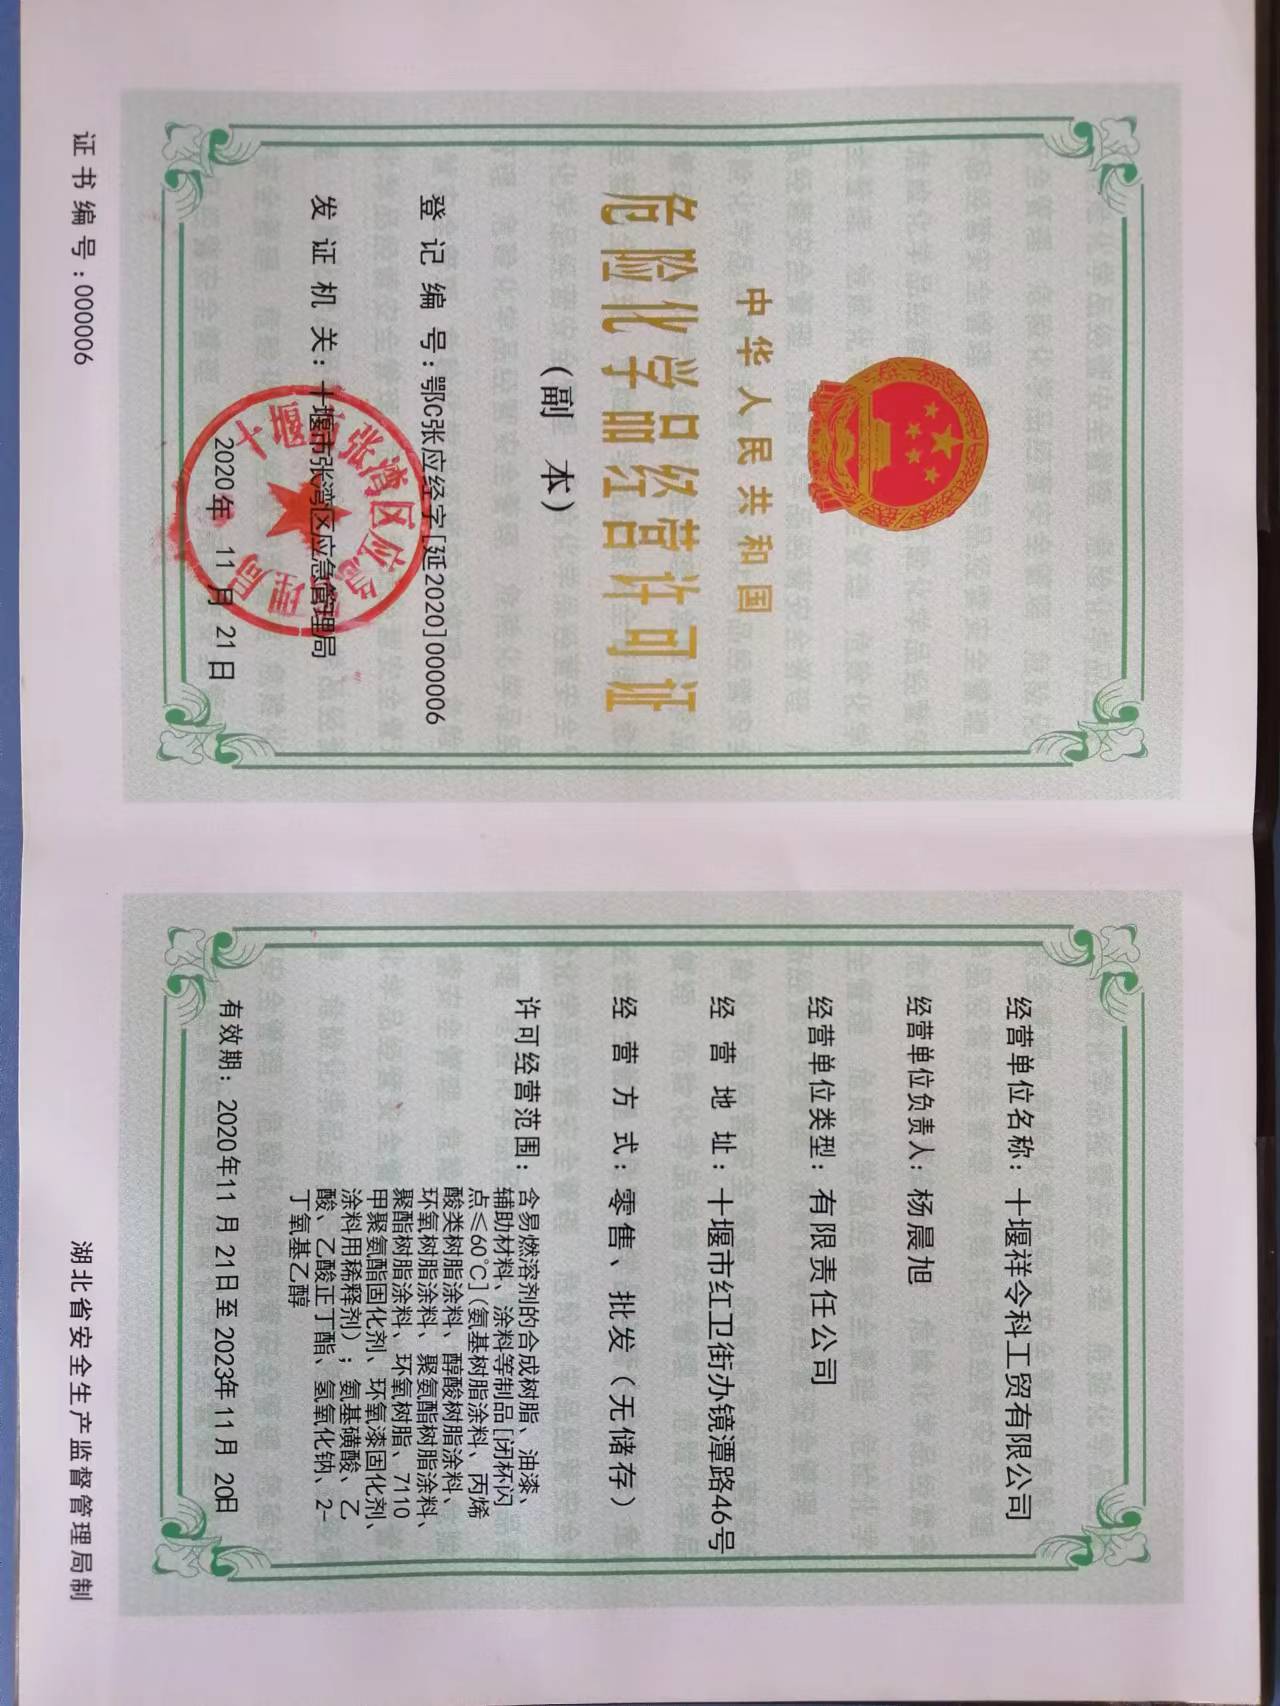 中华人民共和国
危险化学品经营许可证
（副 本）
登 记 编 号：鄂G张应经字[延2020]000006
发 证 机 关：十堰市张湾区应急管理局
2020年 11 月 21日
证书编号：000006
经营单位名称：十堰祥令科工贸有限公司
经营单位负责人：杨晨旭
经营单位类型：有限责任公司
经 营 地 址：十堰市红卫街办镜潭路46号
经 营 方 式：零售、批发（无储存）
许可经营范围：含易燃溶剂的合成树脂、油漆、
辅助材料、涂料等制品[闭杯闪
点≤60℃]（氨基树脂涂料、丙烯
酸类树脂涂料、醇酸树脂涂料、
环氧树脂涂料、聚氨酯树脂涂料、
聚酯树脂涂料、环氧树脂、7110
甲聚氨酯固化剂、环氧漆固化剂、
涂料用稀释剂）；氨基磺酸、乙
酸、乙酸正丁酯、氢氧化钠、2-
丁氧基乙醇
有效期：2020年11 月 21日至 2023年11月 20日
湖北省安全生产监督管理局制